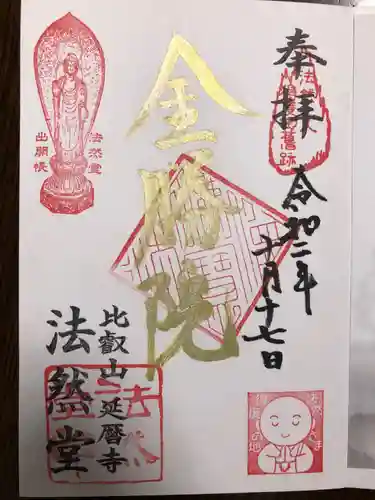 奉拝
令和二年
十一月十七日
金勝院
比叡山延暦寺
法然堂
法然堂
出開帳
法然